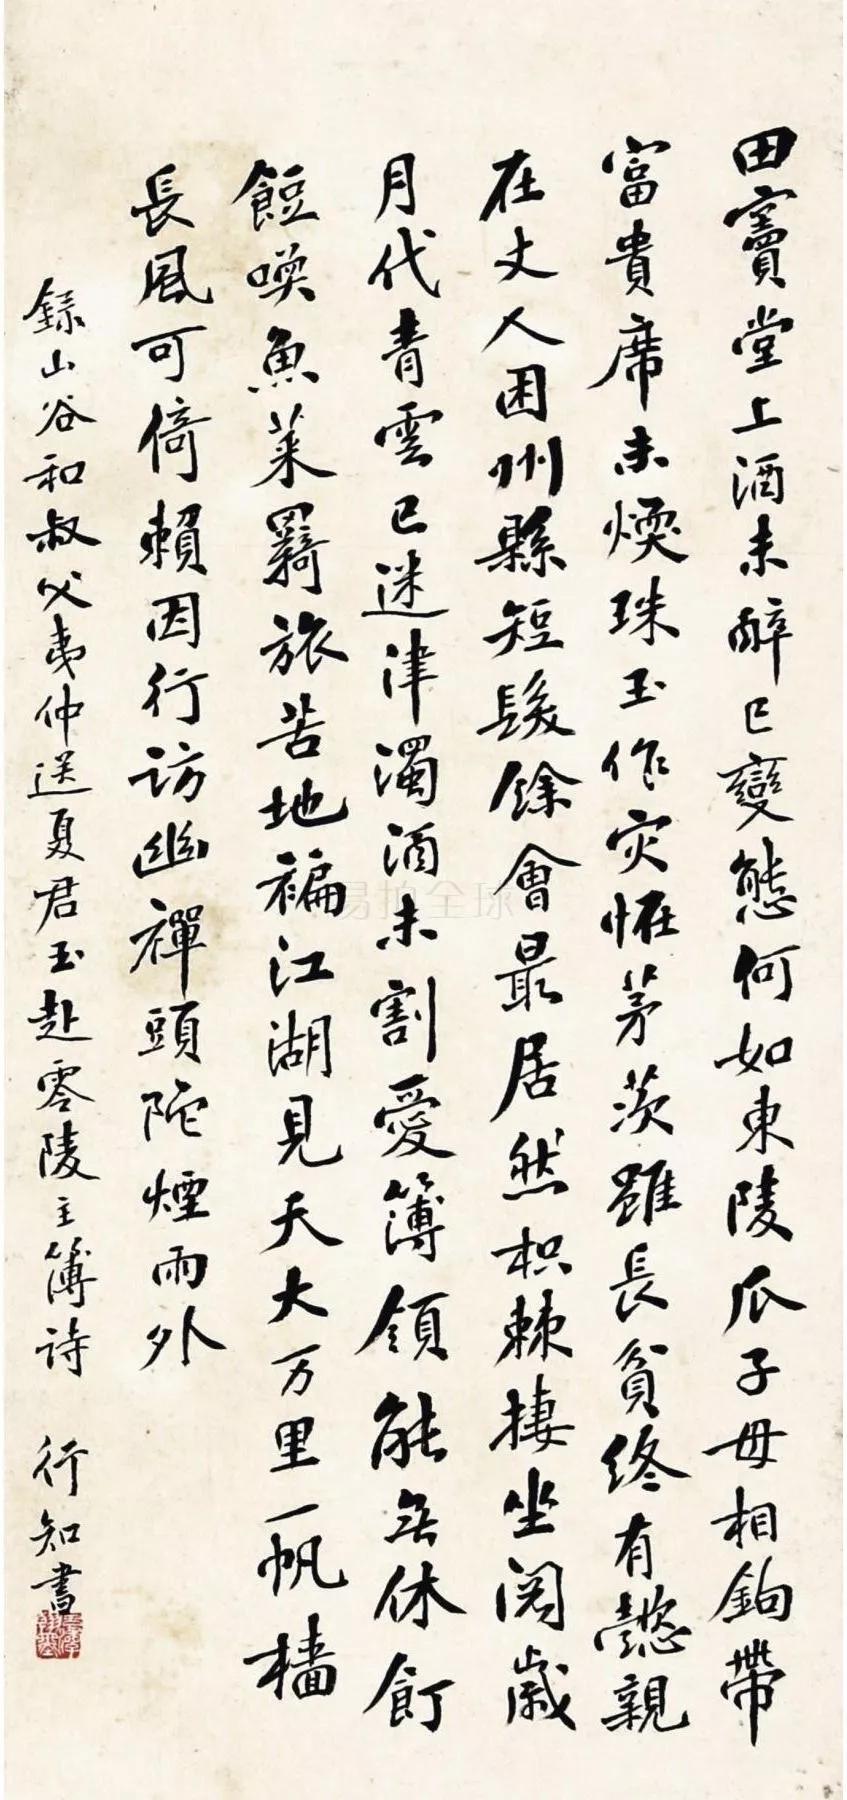 田竇堂上酒未醉已變態何如東陵瓜子母相鉤帶
富貴席未煖珠玉作灾恠茅茨雖長貧終有懿親
在丈人困州縣短髮餘會最居然枳棘棲坐閱歲
月代青雲已迷津濁酒未割愛簿領能無休飣
餖喚魚菜羇旅苦地褊江湖見天大万里一帆檣
長風可倚賴因行訪幽禪頭陀煙雨外
錄山谷和叔父夷仲送夏君玉赴零陵主簿詩 行知書
易拍全球